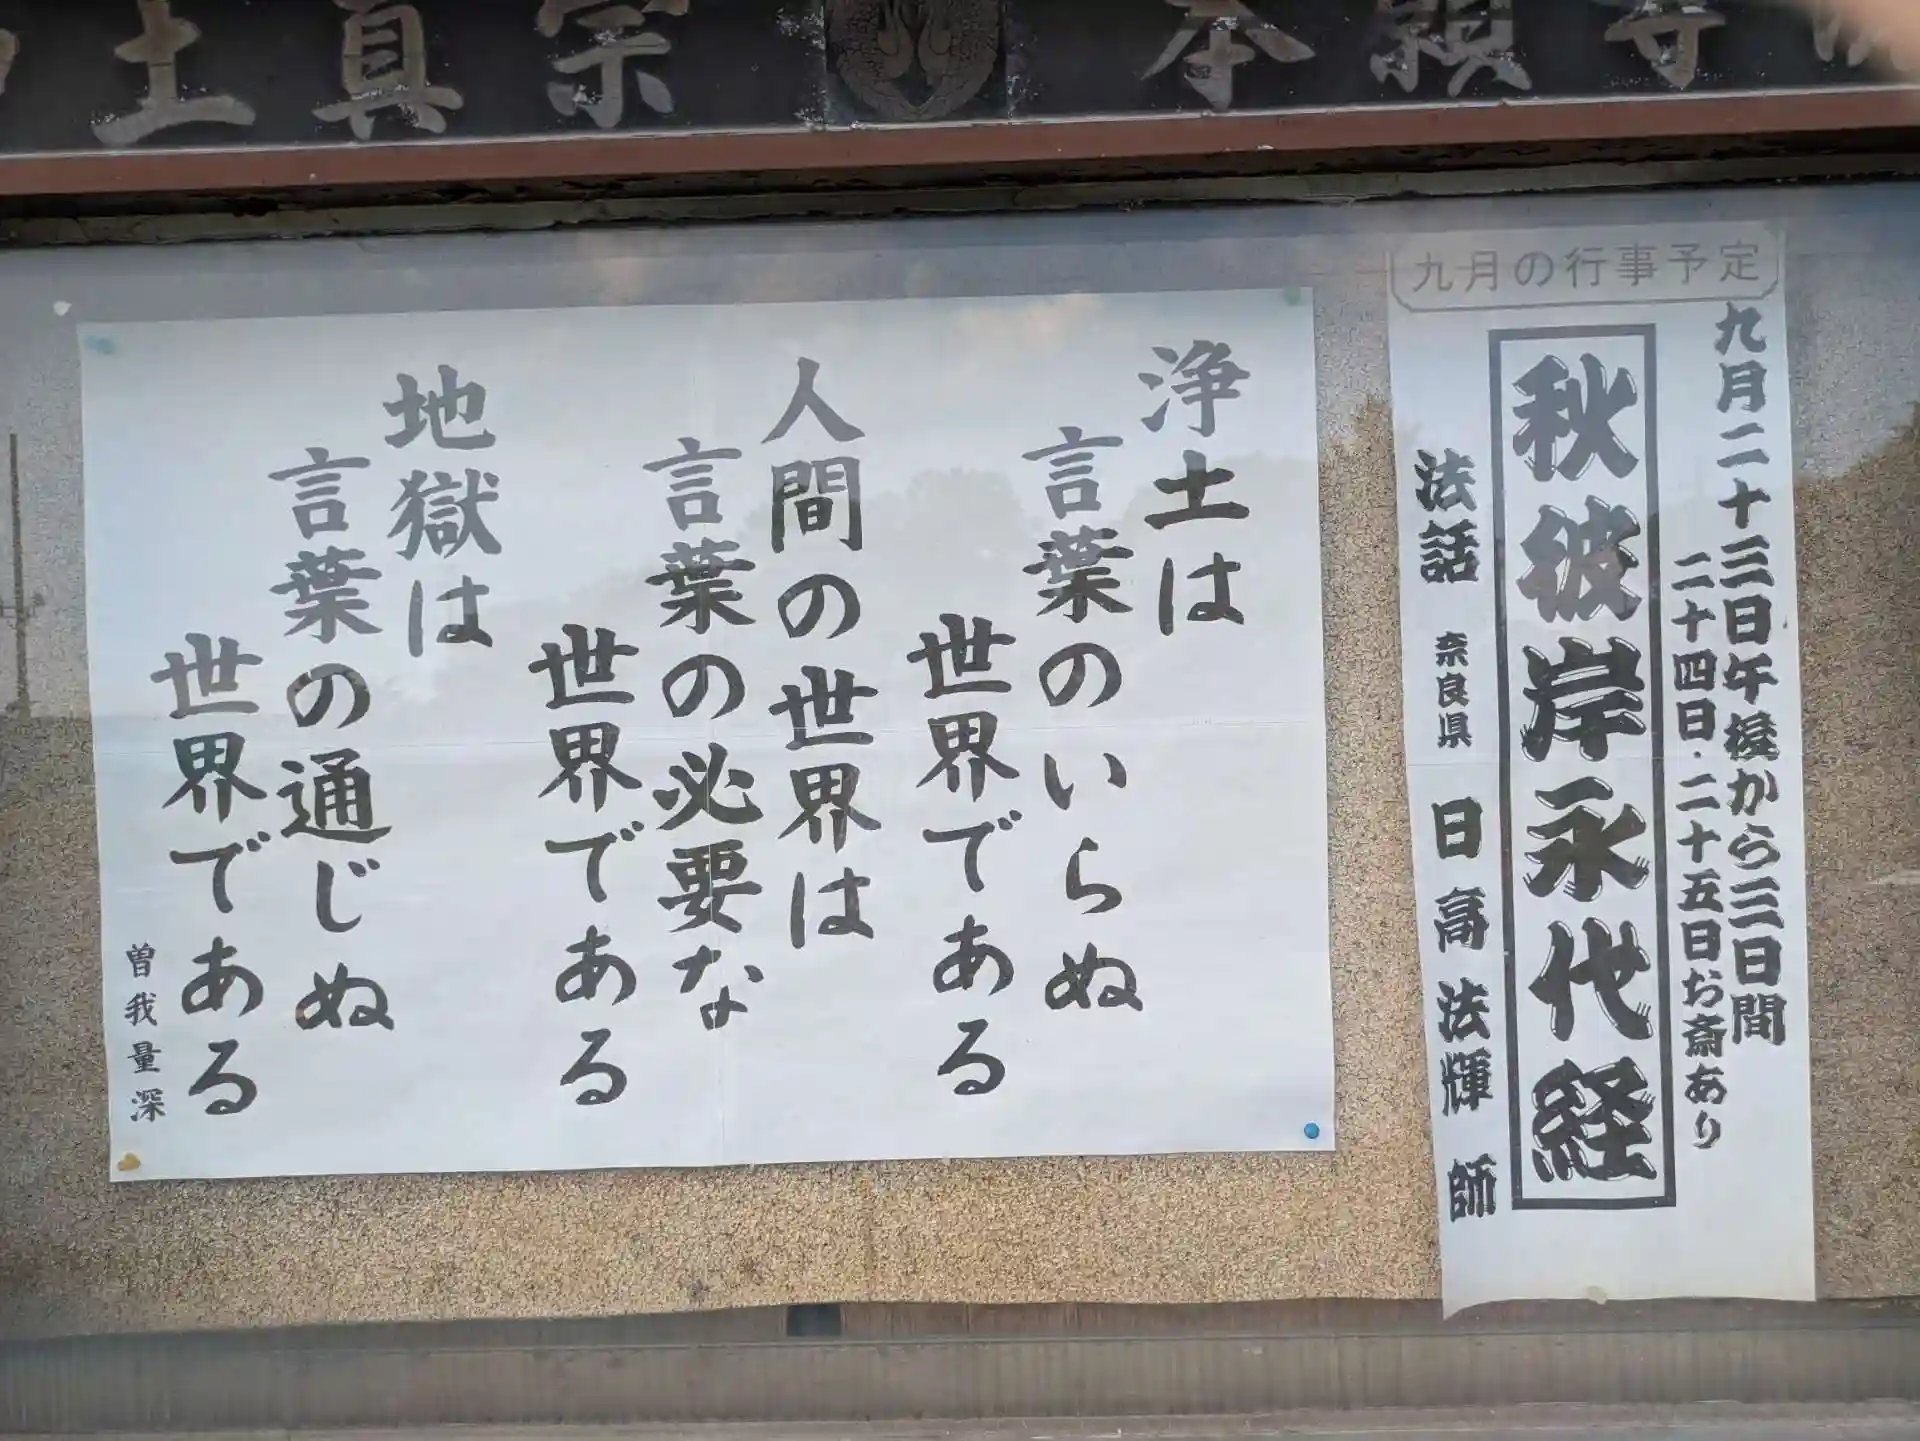 土真宗 本願寺派
浄土は
言葉のいらぬ
世界である
人間の世界は
言葉の必要な
世界である
地獄は
言葉の通じぬ
世界である
曽我量深
九月の行事予定
九月二十三日午後から三日間
二十四日・二十五日お斎あり
秋彼岸永代経
法話 奈良県 日高法輝 師